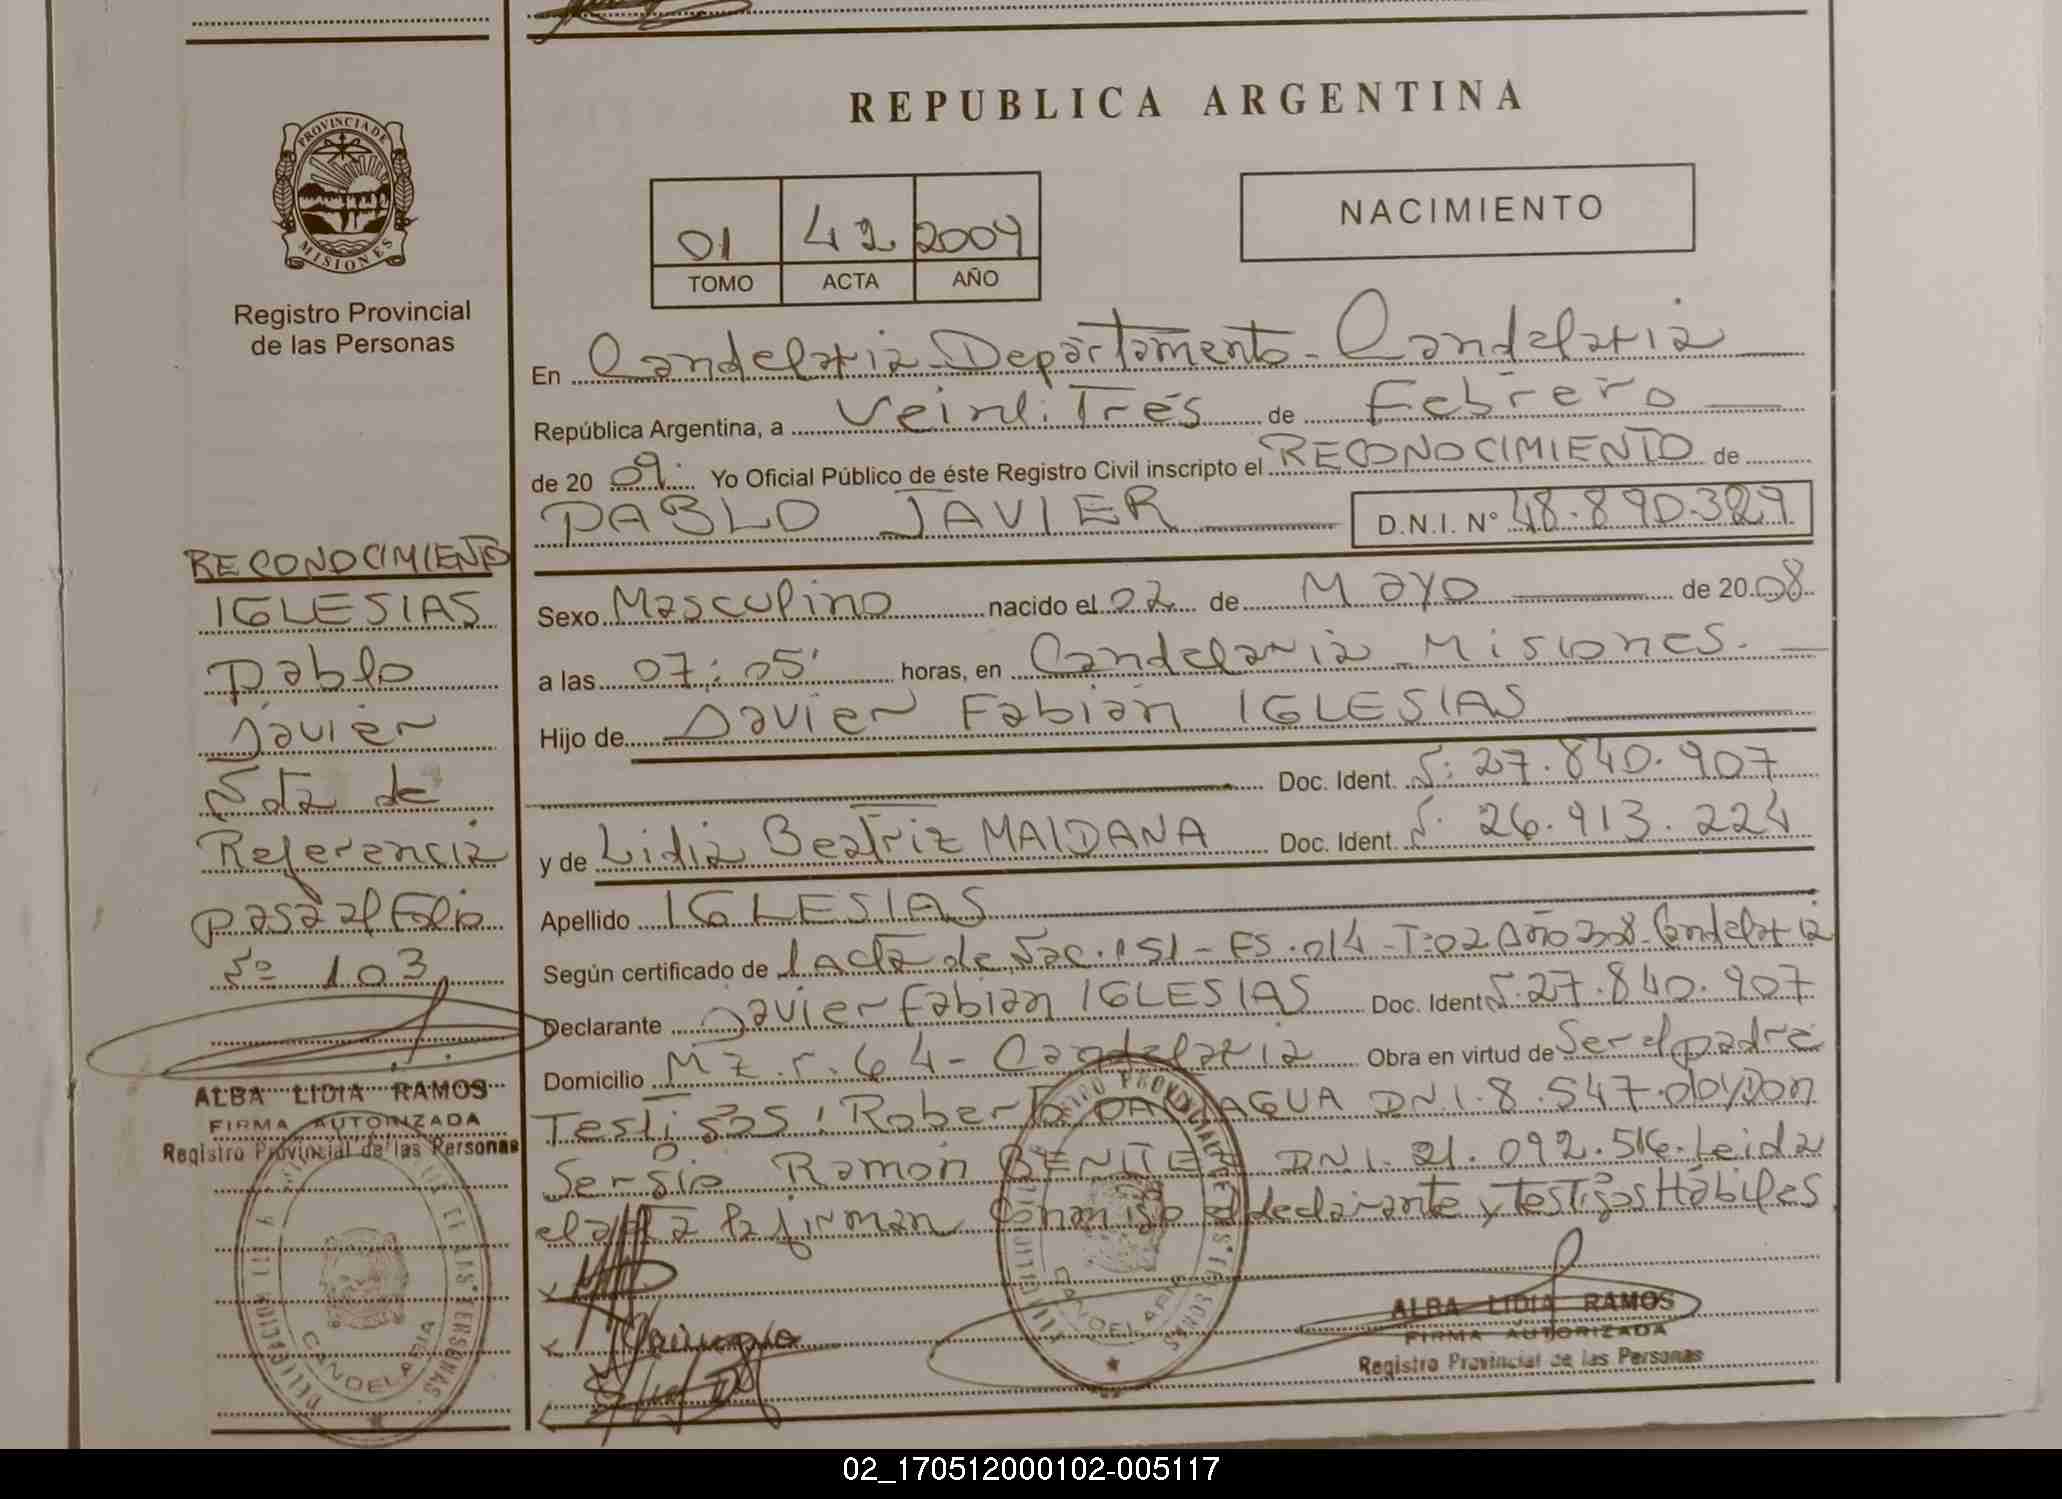 REPUBLICA ARGENTINA
PROVINCIA DE MISIONES
Registro Provincial
de las Personas
01 42 2009
TOMO ACTA AÑO
NACIMIENTO
En Candelaria Departamento - Candelaria
República Argentina, a Veinti Trés de Febrero
de 20 09. Yo Oficial Público de éste Registro Civil inscripto el RECONOCIMIENTO de
PABLO JAVIER D.N.I. N° 48.890.329
Sexo Masculino nacido el 02 de Mayo de 20 08
a las 07:05' horas, en Candelaria Misiones.
Hijo de Javier Fabián IGLESIAS
Doc. Ident. N: 27.840.907
y de Lidia Beatriz MAIDANA Doc. Ident. N. 26.913.224
Apellido IGLESIAS
Según certificado de Acta de Nac. 151 - FS. 014 - T: 02 Año Candelaria
Declarante Javier Fabian IGLESIAS Doc. Ident N. 27.840.907
Domicilio Mz. r. 64 - Candelaria Obra en virtud de Ser el padre
Testigos: Roberto DNI. 8.547. Don
Sergio Ramón BENITEZ DNI. 21.092.516. Leida
el acta la firman Conmigo el declarante y testigos Hábiles
ALBA LIDIA RAMOS
FIRMA AUTORIZADA
Registro Provincial de las Personas
RECONOCIMIENTO
IGLESIAS
Pablo
Javier
Nota de
Referencia
pasa al Folio
Nº 103
ALBA LIDIA RAMOS
FIRMA AUTORIZADA
Registro Provincial de las Personas
CANDELARIA
CANDELARIA
02_170512000102-005117